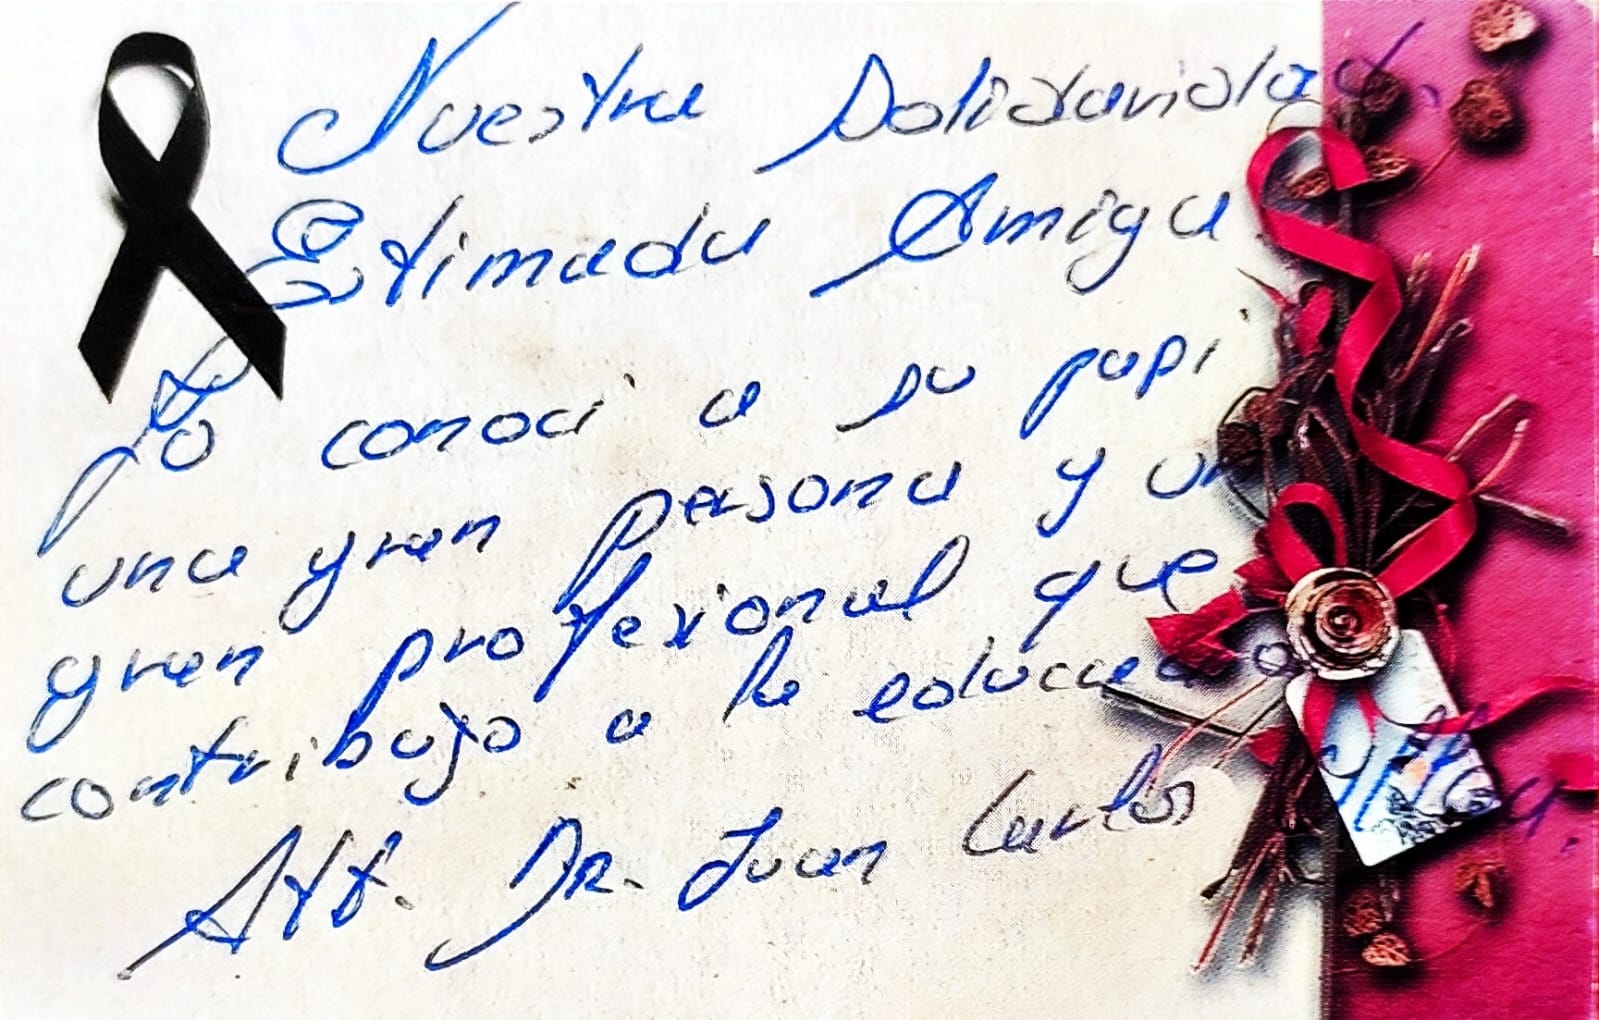 Nuestra Solidaridad.
Estimada Amiga
Yo conocí a su papi
una gran persona y un
gran profesional que
contribuyo a la educacio
Att. Dr. Juan Carlos